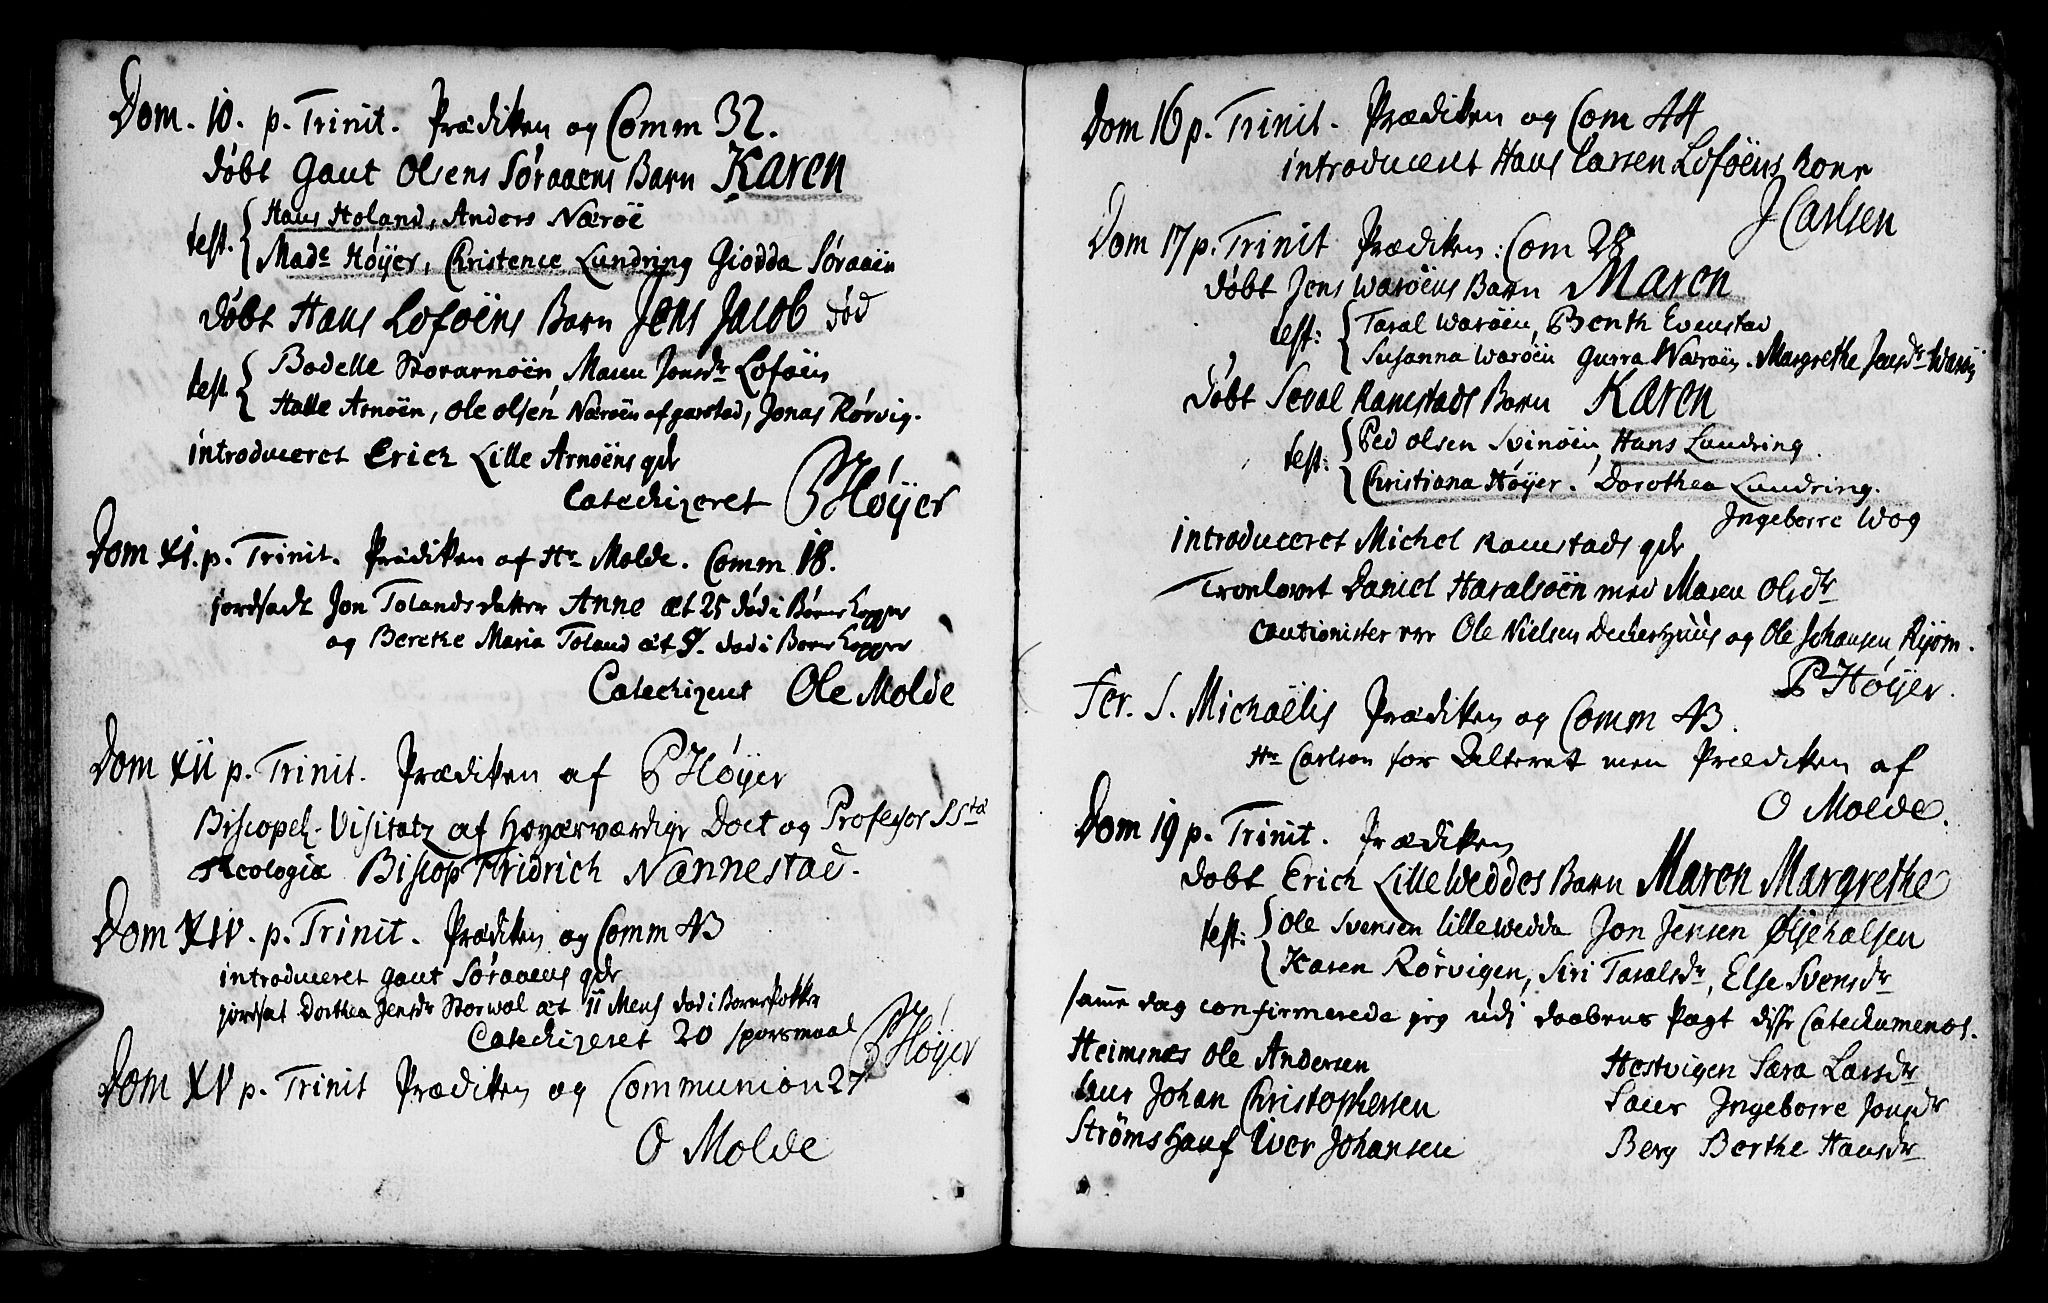 Dom. 10. p. Trinit. Prædiken og Comm 32.
døbt Gaut Olsens Søraaens Barn Karen
test. Hans Holand, Anders Nærøe
Made Høÿer, Christence Lundring Giodda Søraaen
døbt Hans Loføens Barn Jens Jacob død
test Bodelle Storarnøen, Maren Jonsdr Loføen
Halle Arnøen, Ole Olsen Nærøen af garstad, Jonas Rørvig.
introduceret Erich Lille Arnøens qdr
Catechizeret PHøÿer
Dom XI. p. Trinit. Prædiken af Hr Molde. Comm 18.
jordsadt Jon Tolands datter Anne æt 25 død i Børne kopper
og Berethe Maria Toland æt 9. død i Børne kopper
Catechizent Ole Molde
Dom XII p. Trinit. Prædiken af PHøÿer
Biscopel. Visitatz af Høyærværdige Doct og Professor SStæ
Theologiæ Biscop Fridrich Nannestad.
Dom XIV. p. Trinit. Prædiken og Comm 43
introduceret Gaut Søraaens qdr
jordsat Dorthea Jensdr Storwal æt 11 Mens død i Børnepokker
Catechizeret 20 spørsmaal PHøÿer
Dom XV p. Trinit Prædiken og Communion 27
O Molde
Dom 16 p. Trinit. Prædiken og Com 44
introduceret Hans Larsen Loføens Kone
J Carlsen
Dom 17 p. Trinit Prædiken: Com 28
døbt Jens Warøens Barn Maren
test: Taral Warøen, Benth Evenstad
Susanna Warøen Gurra Nærøen. Margrethe Jensdr Warøe
døbt Seval Ramstads Barn Karen
test: Ped Olsen Svinøen, Hans Lundring
Christiana Høÿer. Dorothea Lundring.
Ingeborre Wog
introduceret Michel Ramstads qdr
Troelovet Daniel Haralsøen med Maren Olsdr
cautionister var Ole Nielsen Deckerhuus og Ole Johansen Kyøm.
PHøÿer.
Fer. S. Michaëlis Prædiken og Comm 43.
Hr Carlsen for Alteret men Prædiken af
O Molde.
Dom 19 p. Trinit. Prædiken
døbt Erich Lille Weddes Barn Maren Margrethe
test: Ole Svensen Lille Wedda Jon Jensen Øljehalsen
Karen Rørvigen, Siri Taralsdr, Else Svensdr
samme dag confirmerede jeg udi daabens Pagt disse Catechumenos.
Heimsnes Ole Andersen
Saur Johan Christophersen
Strømshauf Iver Johansen
Hestvigen Sara Larsdr
Saur Ingeborre Jonsdr
Berg Berthe Hansdr